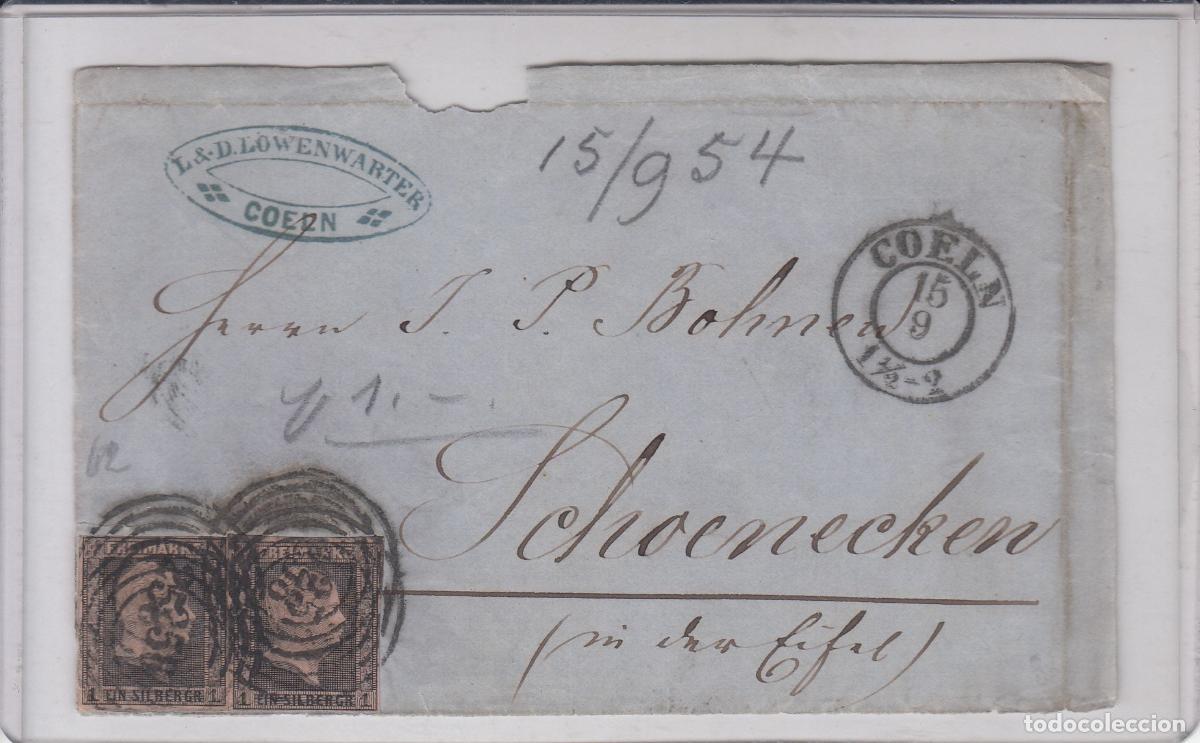 L. & D. LÖWENWARTER
COELN
15/9 54
COELN
15
9
1½-2
Herrn J. P. Bohnen
1.-.
62
Schoenecken
(in der Eifel)
FREIMARKE
1 EIN SILBERGR. 1
FREIMARKE
1 EIN SILBERGR. 1
todocoleccion